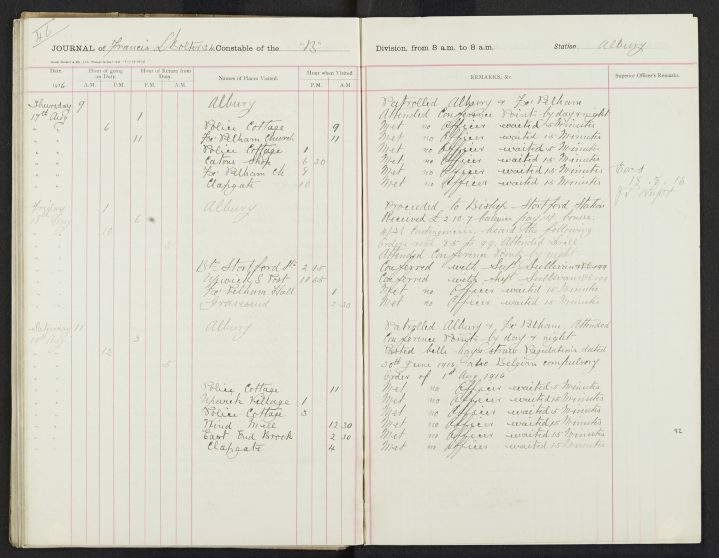 46
JOURNAL of Francis Constable of the "B" Division, from 8 a.m. to 8 a.m. Station Albury
Date. Hour of going on Duty. Hour of Return from Duty. Names of Places Visited. Hour when Visited. REMARKS, &c. Superior Officer's Remarks.
1916 A.M. P.M. P.M. A.M. P.M. A.M.
Thursday 9 Albury Patrolled Albury & Fx Pelham
17th Aug 1 Attended Conference Points by day & night
6 Police Cottage 9 Met no Officer waited 5 Minutes
11 Fx Pelham Church 11 Met no Officer waited 15 Minutes
Police Cottage 1 Met no Officer waited 5 Minutes
Eatons Shop 6 20 Met no Officer waited 15 Minutes
Fx Pelham Ch 9 Met no Officer waited 15 Minutes
Clapgate 10 Met no Officer waited 15 Minutes
18.8.16
Friday 1 Albury Proceeded to Bishop Stortford Station
18th Aug 6 Received £2.10.7 balance pay &
10 heard the following
Orders read Attended Drill
Attended Conference Points by night
Bp Stortford Stn 2 15 Conferred with Supt Sullivan
Upwick S Post 10 55 Conferred with Supt Sullivan
Fx Pelham Hall 1 Met no Officer waited 15 Minutes
Gravesend 2 30 Met no Officer waited 15 Minutes
Saturday 11 Albury Patrolled Albury & Fx Pelham Attended
19th Aug 3 Conference Points by day & night
12 Posted bills hay & straw Regulation dated
5 30th June 1916, also Belgian compulsory
Order of 1st Aug 1916
Police Cottage 11 Met no Officer waited 5 Minutes
Upwick Village 1 Met no Officer waited 15 Minutes
Police Cottage 3 Met no Officer waited 5 Minutes
Wind Mill 12 30 Met no Officer waited 15 Minutes
East End Brook 2 30 Met no Officer waited 15 Minutes
Clapgate 4 Met no Officer waited 15 Minutes